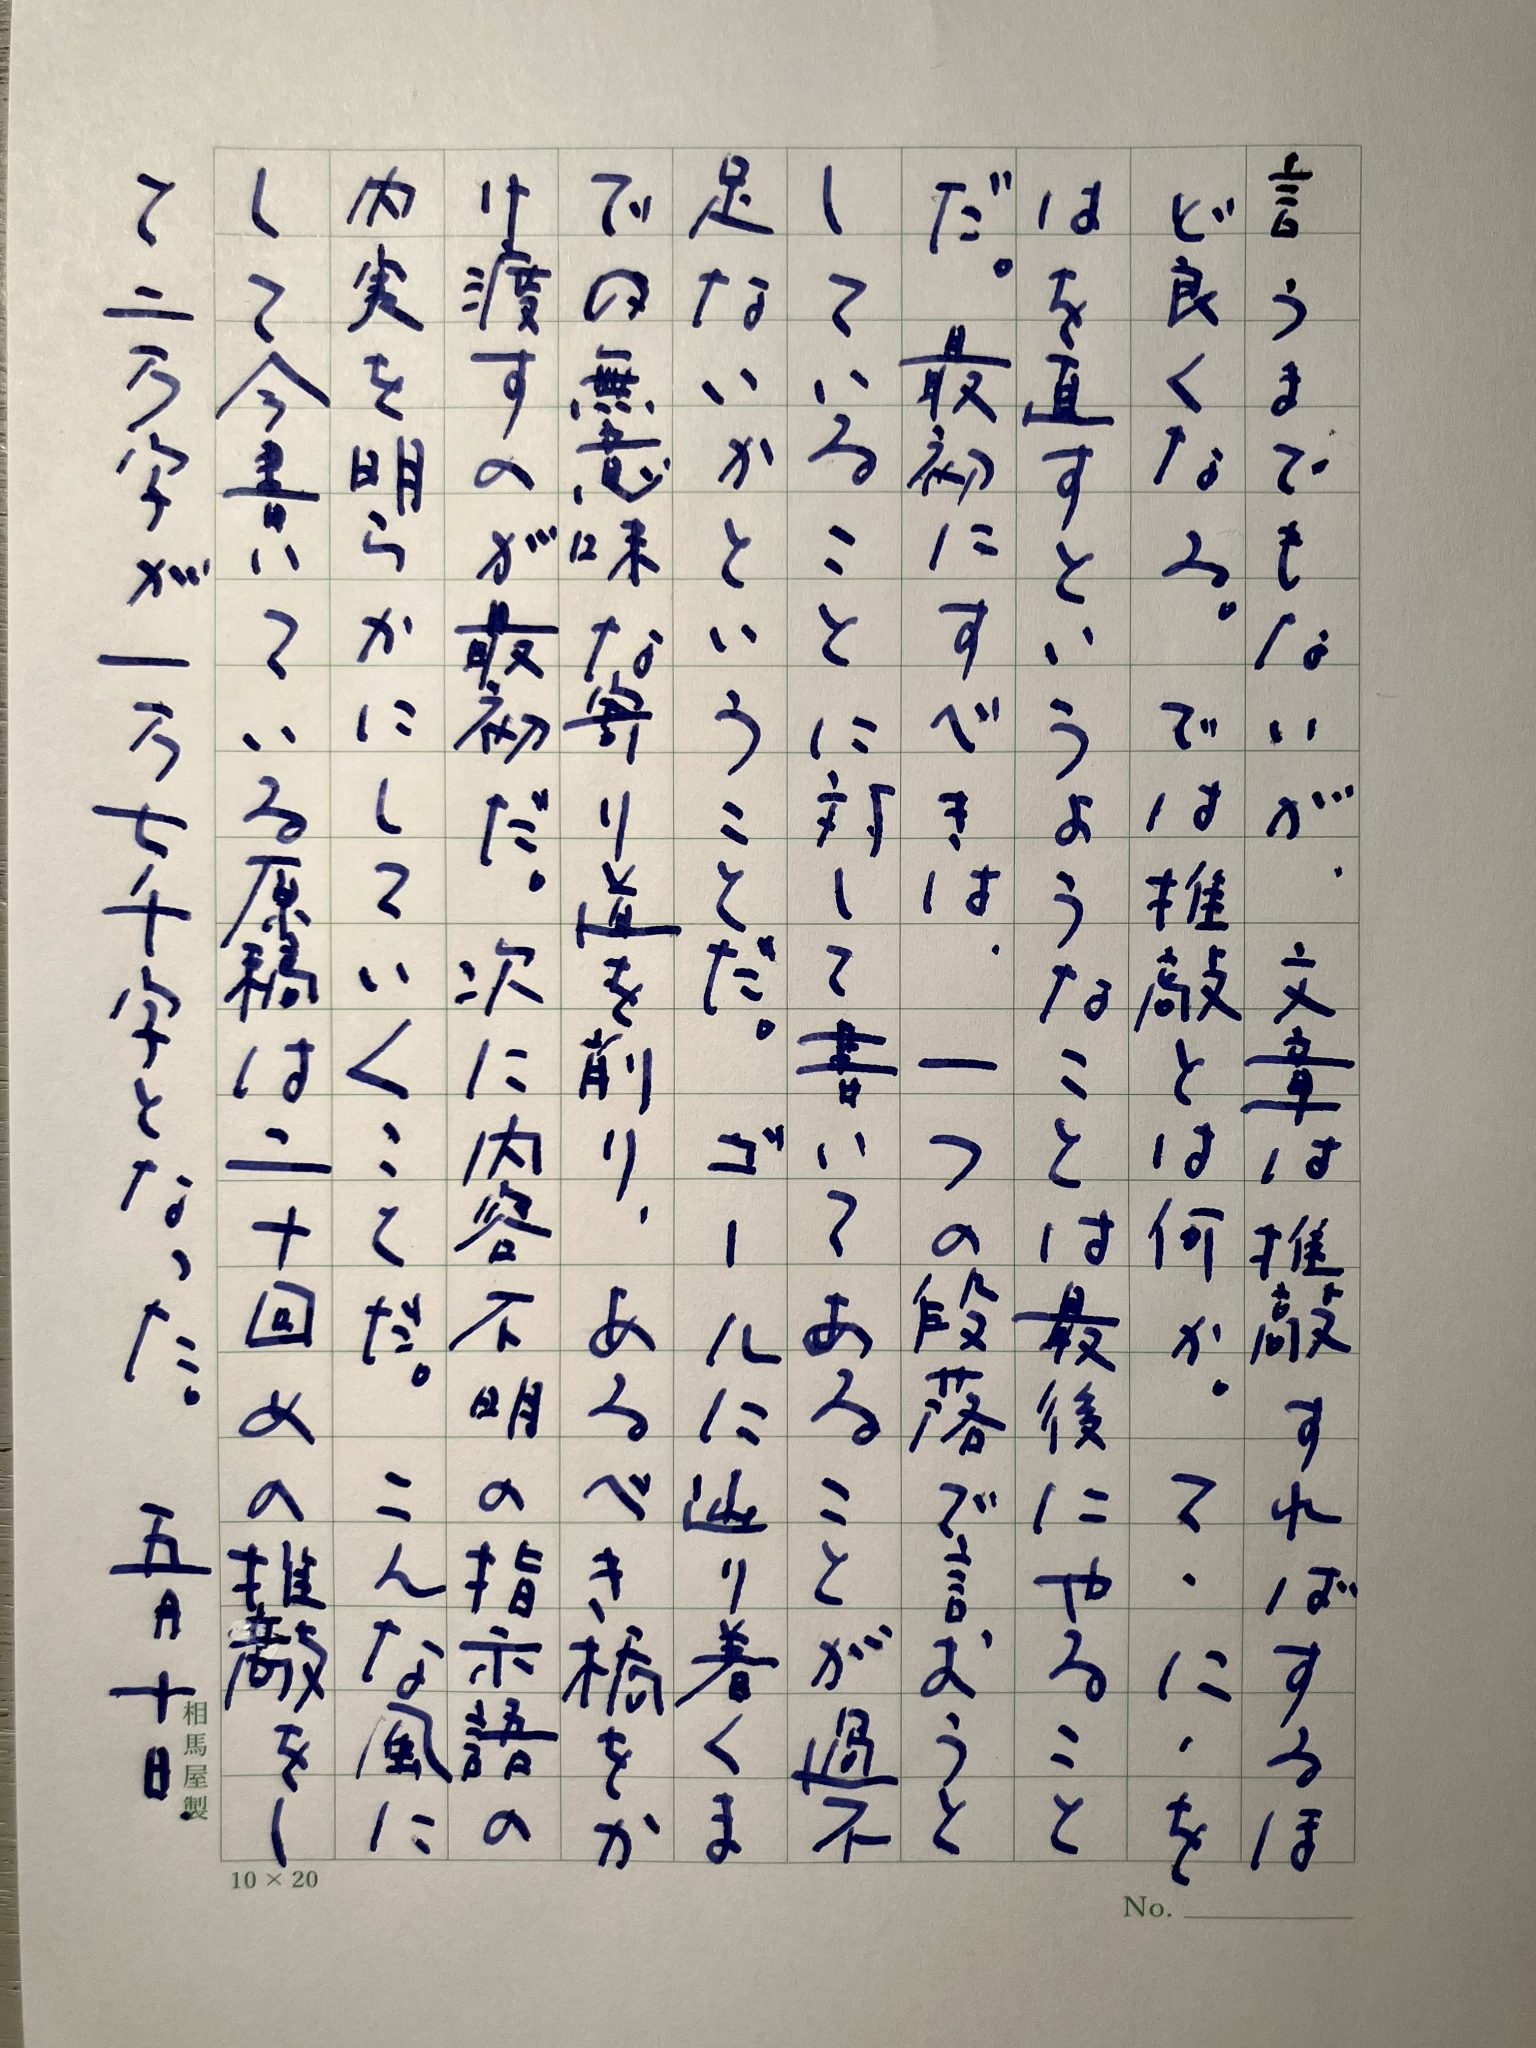 言うまでもないが、文章は推敲すればするほ
ど良くなる。では推敲とは何か。て・に・を
はを直すというようなことは最後にやること
だ。最初にすべきは、一つの段落で言おうと
していることに対して書いてあることが過不
足ないかということだ。ゴールに辿り着くま
での無意味な寄り道を削り、あるべき橋をか
け渡すのが最初だ。次に内容不明の指示語の
内実を明らかにしていくことだ。こんな風に
して今書いている原稿は二十回めの推敲をし
て二万字が一万七千字となった。 五月十日。
相馬屋製
10 × 20
No.